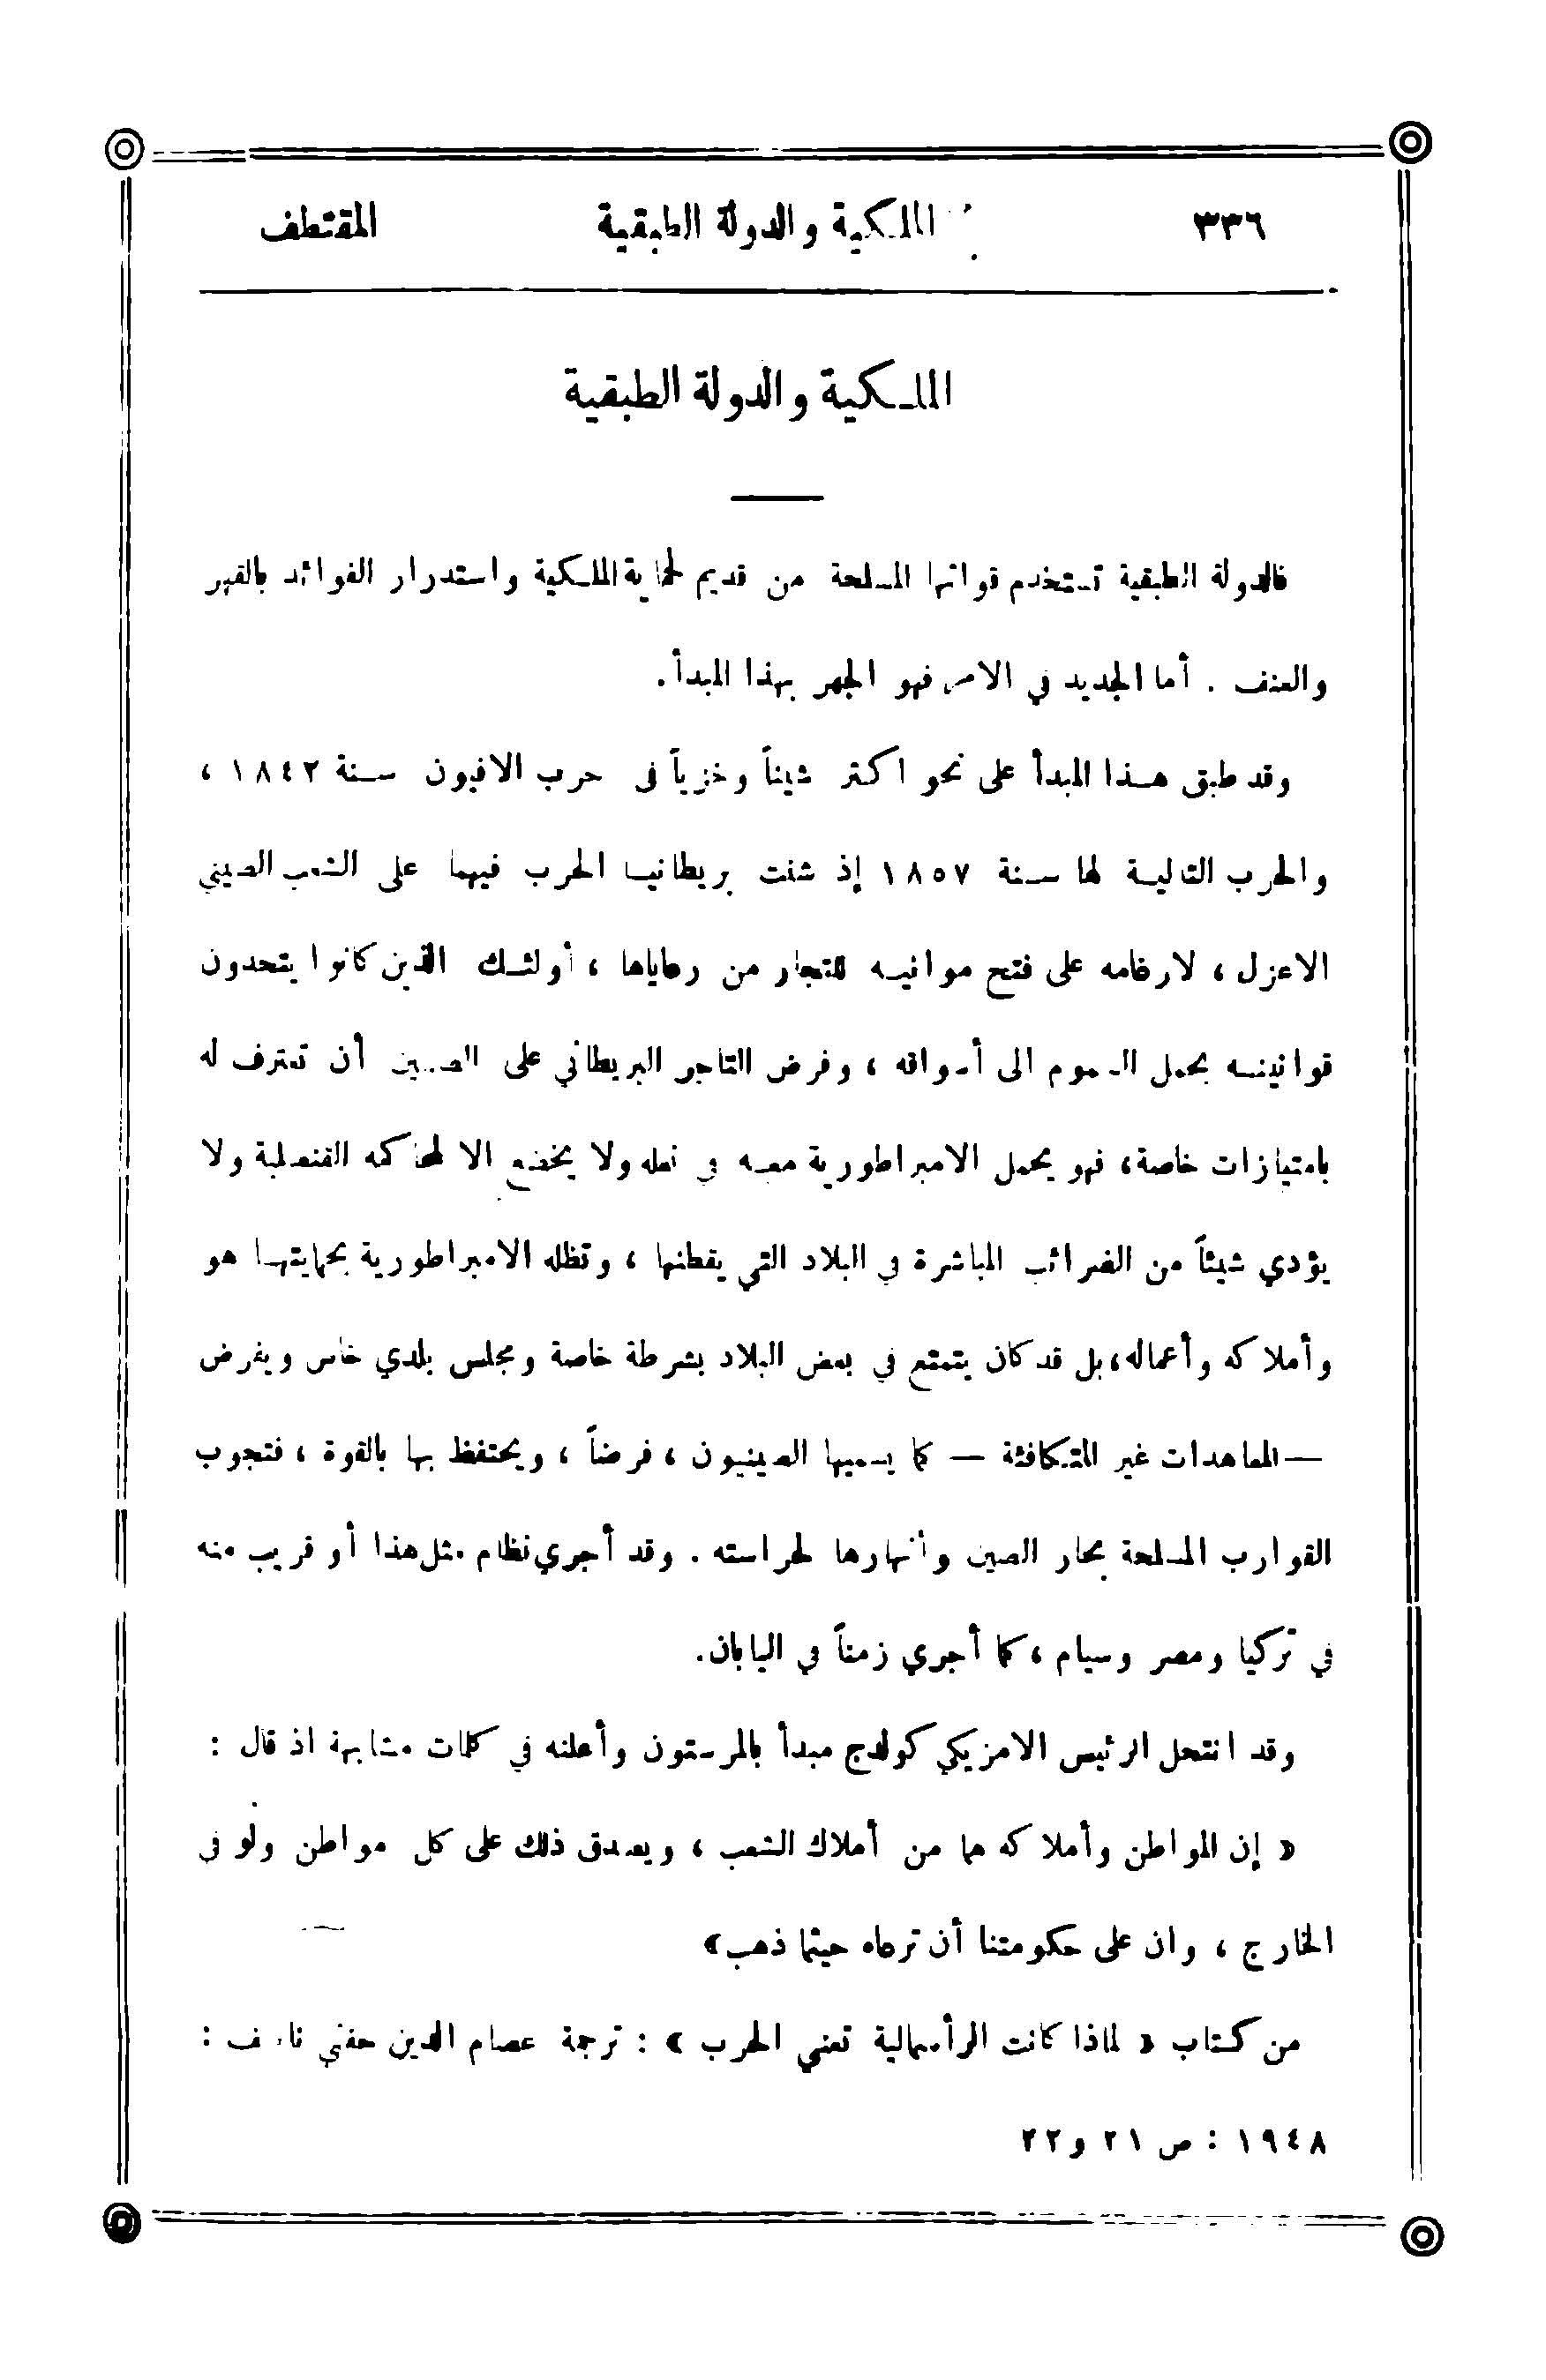 ٣٣٦ الملكية والدولة الطبقية المقتطف
الملكية والدولة الطبقية
فالدولة الطبقية تستخدم قواتها المسلحة من قديم لحماية الملكية واستدرار الفوائد بالقهر
والعنف . أما الجديد في الامر فهو الجهر بهذا المبدأ .
وقد طبق هذا المبدأ على نحو اكثر شيناً وخزياً فى حرب الافيون سنة ١٨٤٢ ،
والحرب التالية لها سنة ١٨٥٧ إذ شنت بريطانيا الحرب فيهما على الشعب الصيني
الاعزل ، لارغامه على فتح موانيه للتجار من رعاياها ، أولئك الذين كانوا يتحدون
قوانينه بحمل السموم الى أسواقه ، وفرض التاجر البريطاني على الصين أن تعترف له
بامتيازات خاصة ، فهو يحمل الامبراطورية معه في نعله ولا يخضع الا لمحاكمه القنصلية ولا
يؤدي شيئاً من الضرائب المباشرة في البلاد التي يقطنها ، وتظله الامبراطورية بحمايتها هو
وأملاكه وأعماله ، بل قد كان يتمتع في بعض البلاد بشرطة خاصة ومجلس بلدي خاص ويفرض
— المعاهدات غير المتكافئة — كما يسميها الصينيون ، فرضاً ، ويحتفظ بها بالقوة ، فتجوب
القوارب المسلحة بحار الصين وأنهارها لحراسته . وقد أجري نظام مثل هذا أو قريب منه
في تركيا ومصر وسيام ، كما أجري زمناً في اليابان .
وقد انتحل الرئيس الامريكي كولدج مبدأ بالمرستون وأعلنه في كلمات مشابهة اذ قال :
« إن المواطن وأملاكه هما من أملاك الشعب ، ويصدق ذلك على كل مواطن ولو فى
الخارج ، وان على حكومتنا أن ترعاه حيثما ذهب »
من كتاب « لماذا كانت الرأسمالية تعني الحرب » : ترجمة عصام الدين حفني ناصف :
١٩٤٨ : ص ٢١ و٢٢